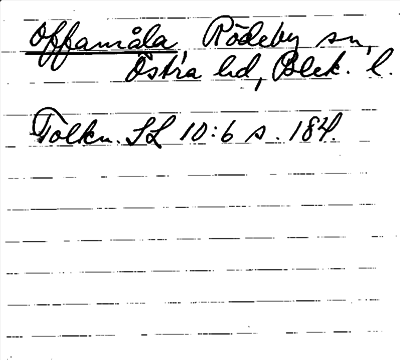 Offamåla, Rödeby sn,
Östra hd, Blek. l.
Tolkn. SL 10:6 s. 184.